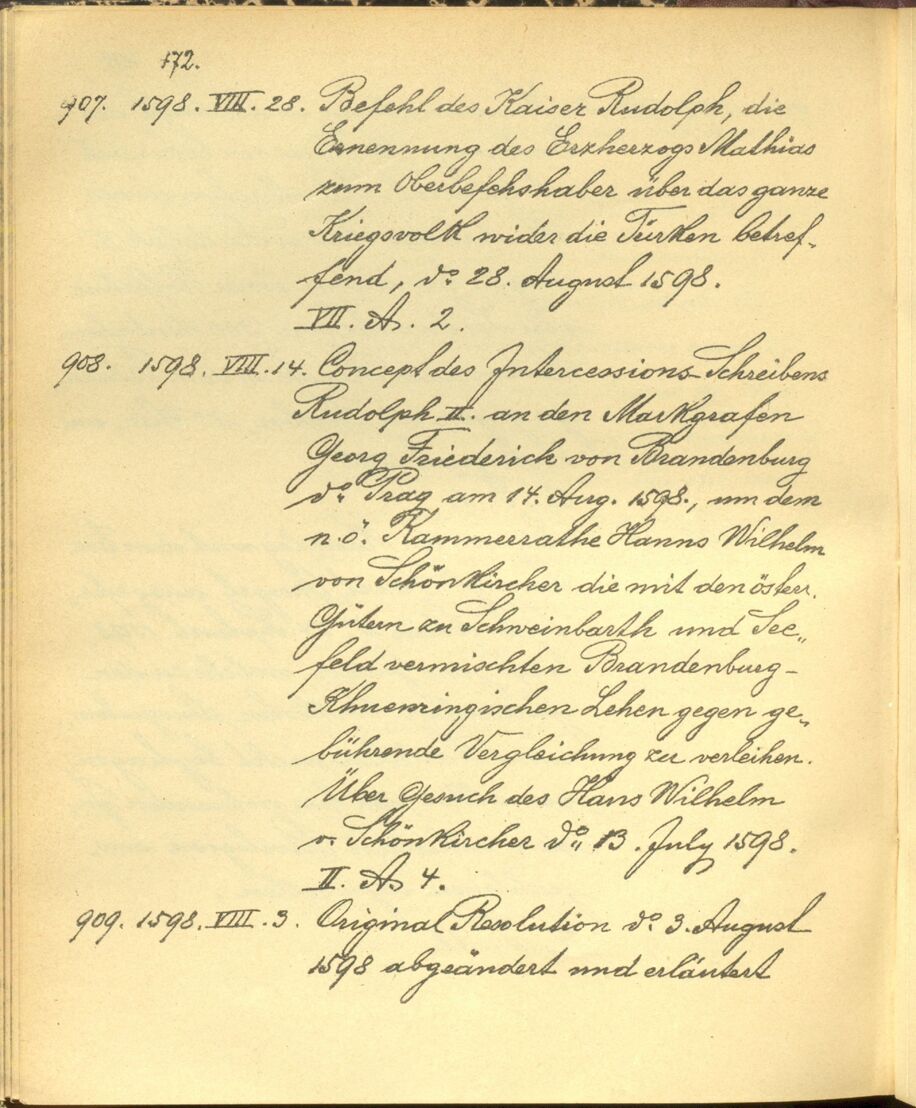 172.
907. 1598. VIII. 28. Befehl des Kaiser Rudolph, die
Ernennung des Erzherzogs Mathias
zum Oberbefehshaber über das ganze
Kriegsvolk wider die Türken betref-
fend, do 28. August 1598.
VII. A. 2.
908. 1598. VIII. 14. Concept des Intercessions-Schreibens
Rudolph II. an den Markgrafen
Georg Friederich von Brandenburg
do Prag am 14. Aug. 1598., um dem
n. ö. Kammerrathe Hanns Wilhelm
von Schönkircher die mit den österr.
Gütern zu Schweinbarth und See„
feld vermischten Brandenburg-
Khuenringischen Lehen gegen ge„
bührende Vergleichung zu verleihen.
Über Gesuch des Hans Wilhelm
v. Schönkircher do 13. July 1598.
II. A 4.
909. 1598. VIII. 3. Original Resolution do 3. August
1598 abgeändert und erläutert